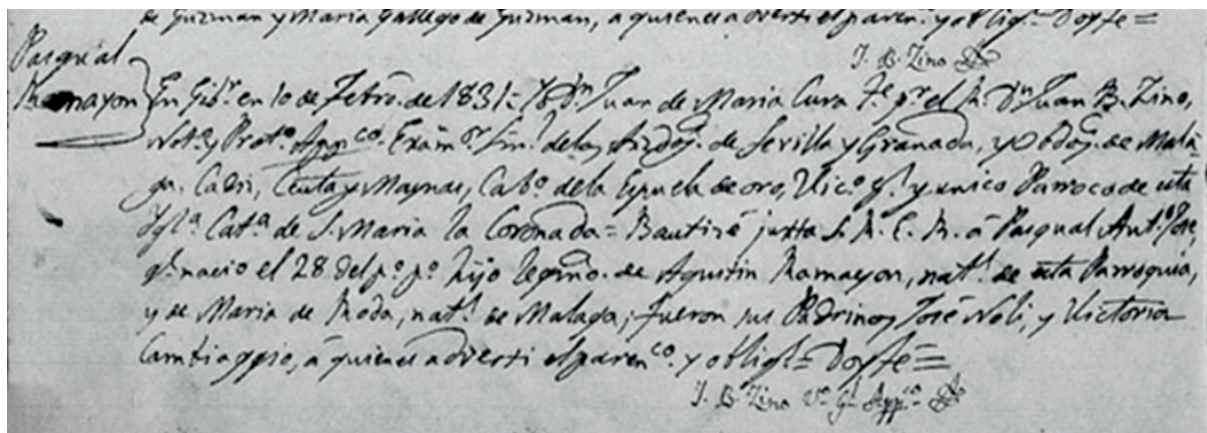 de Guzman y Maria Gallego de Guzman, a quienes adverti el paren.co y oblig.s Doy fe =
J. B. Zino
Pasqual
Ramayon
En Gibr. en 10 de Febro. de 1831 = Yo Dn. Juan de Maria Cura Te. pr. el R. Dn. Juan B. Zino,
Noto. y Proto. Appco. Examor. Sinl. de los Arzdos. de Sevilla y Granada, y Obdos. de Mala-
ga, Cadiz, Ceuta y Maynas, Cabo. de la Espuela de oro, Vico. Gl. y unico Parroco de esta
Ygla. Cata. de S. Maria la Coronada = Bautizé juxta S. R. E. R. á Pasqual Anto. Jose,
qe. nacio el 28 del po. po. hijo legmo. de Agustin Ramayon, natl. de esta Parroquia,
y de Maria de Roda, natl. de Malaga; fueron sus Padrinos José Noli, y Victoria
Cambiaggio, á quienes adverti el parenco. y oblign. = Doy fé =
J. B. Zino Vo. Gl. Appco.